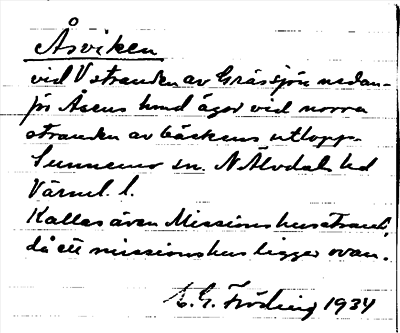 Åsviken
vid V stranden av Grässjön nedan-
för Åsens hmd ägor vid norra
stranden av bäckens utlopp.
Sunnemo sn. N Älvdals hd
Värml. l.
Kallas även Missionshusstrand,
då ett missionshus ligger ovan.
E. G. Fröding 1934